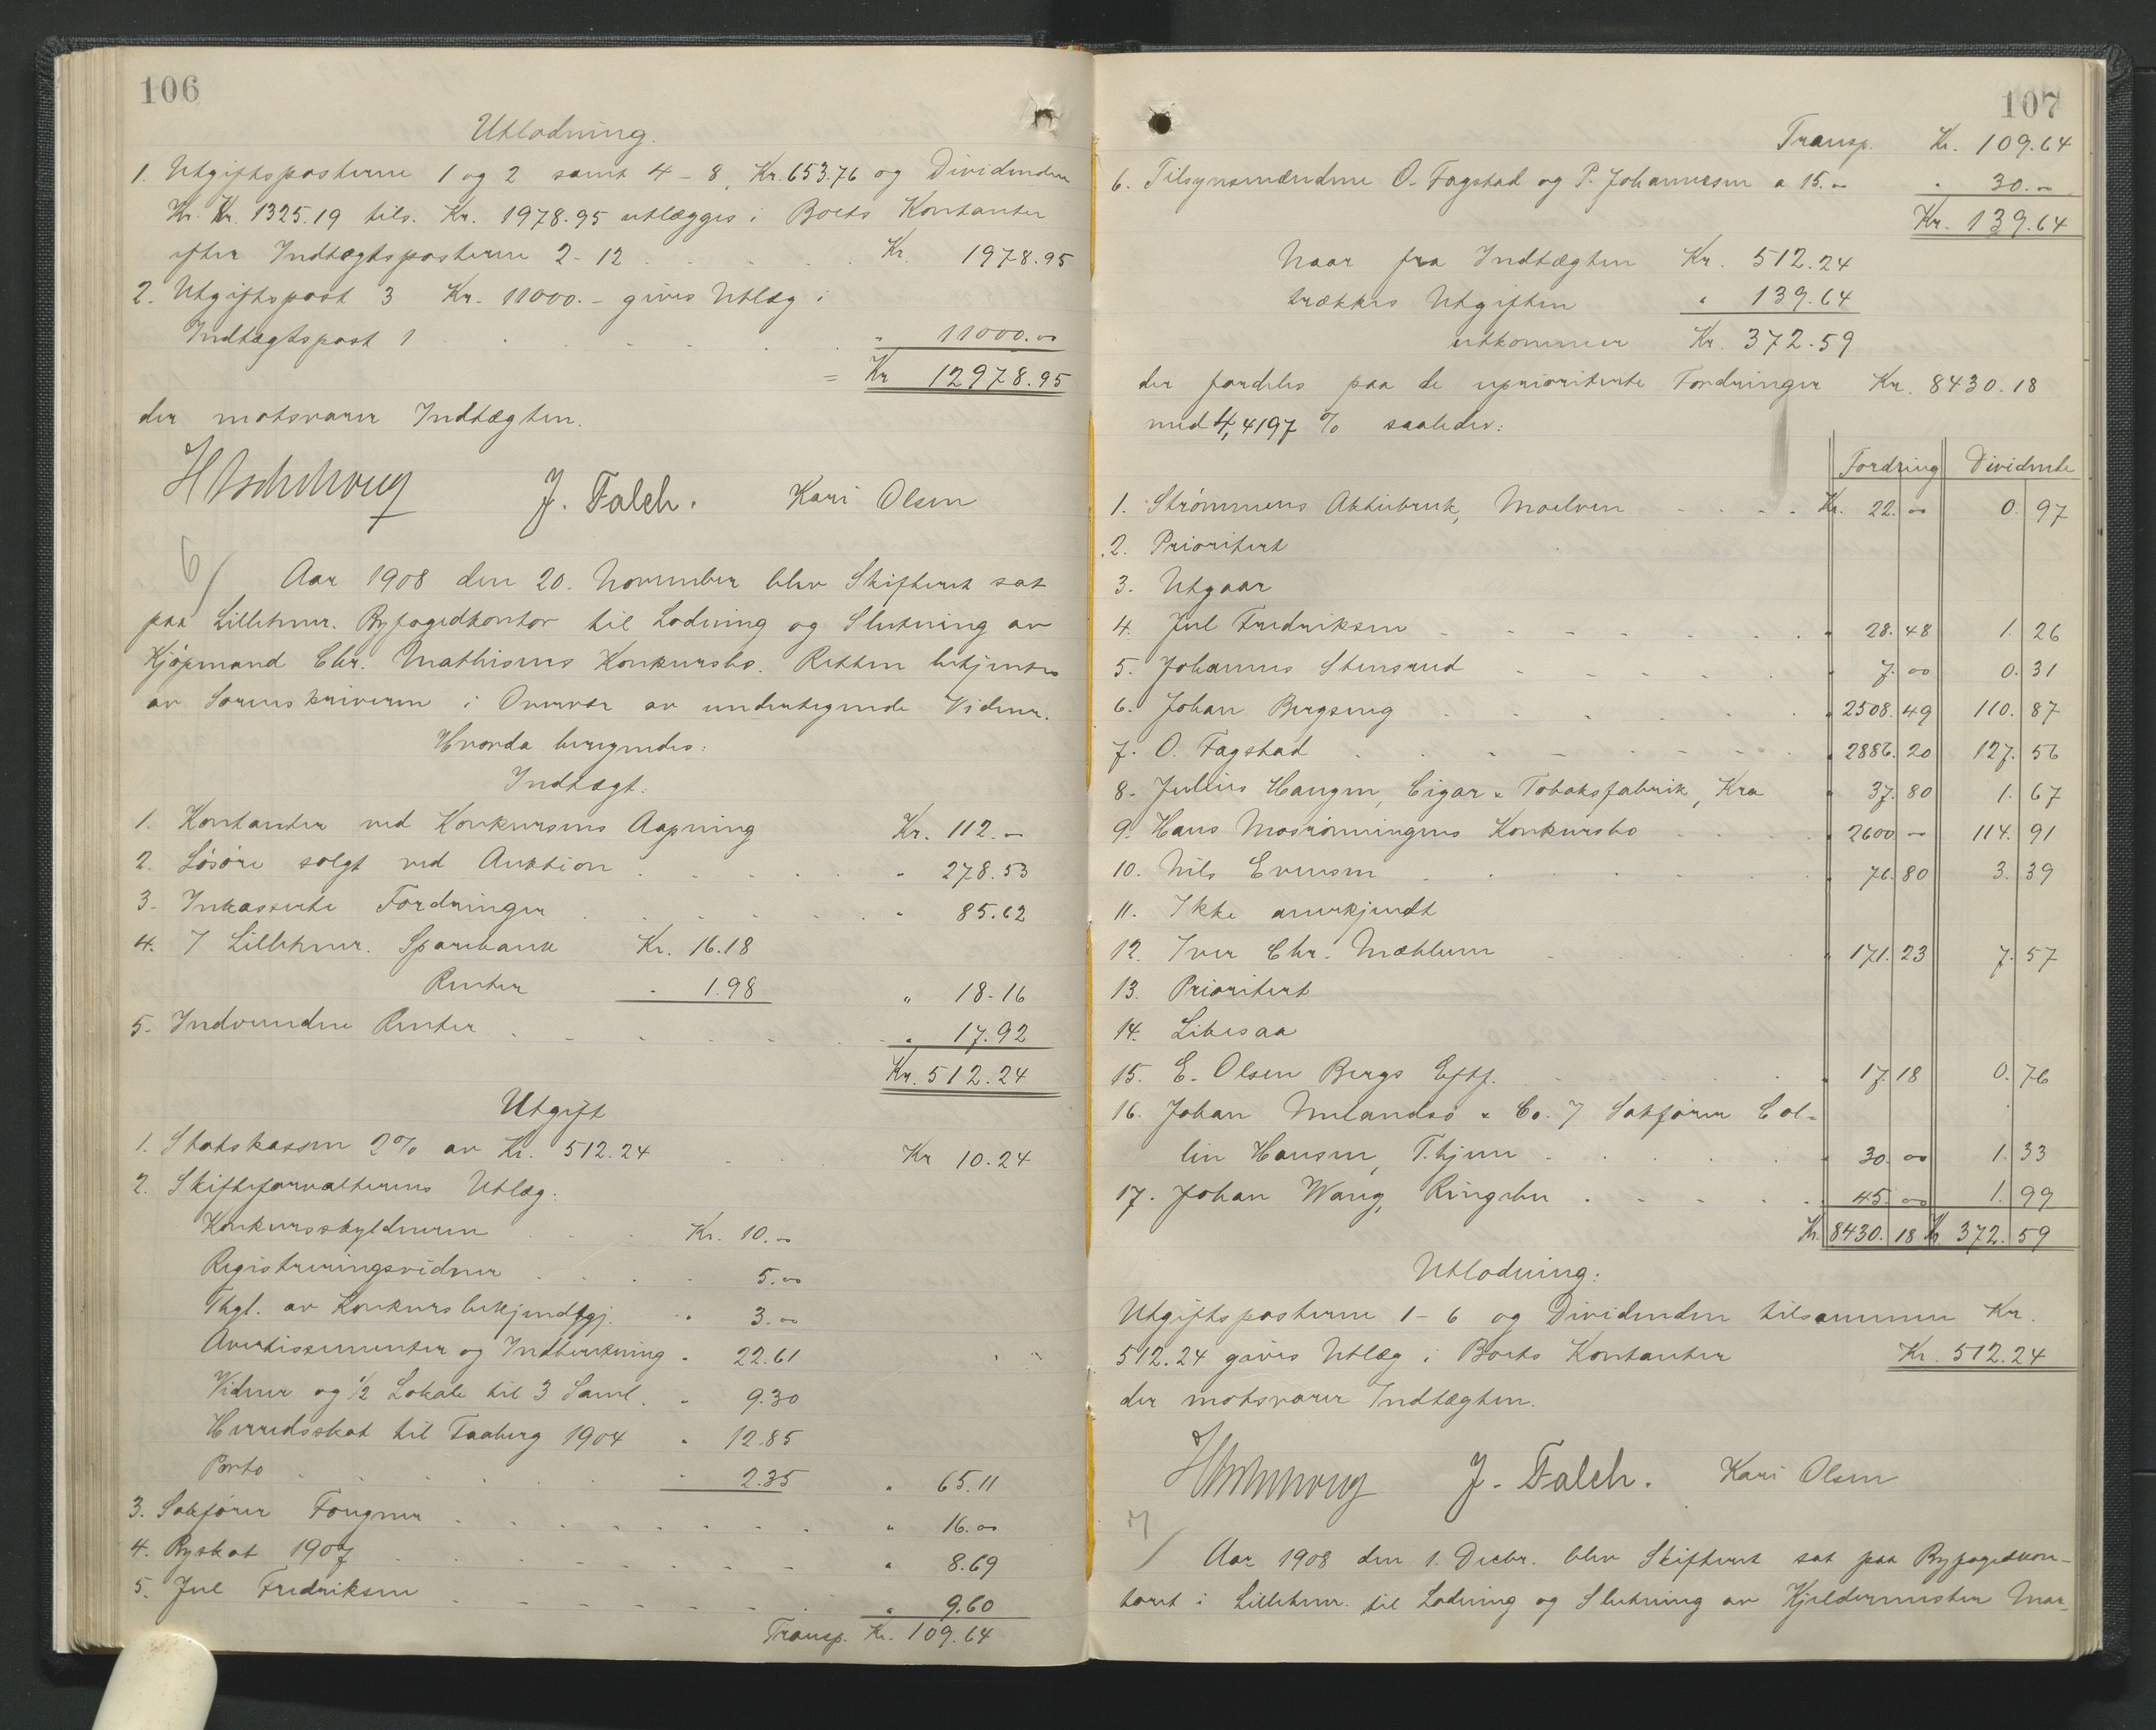 106
Utlodning.
1. Utgiftsposterne 1 og 2 samt 4 - 8, Kr. 653.76 og Dividenden
Kr. 1325.19 tils. Kr. 1978.95 utlægges i Boets Kontanter
efter Indtægtsposterne 2-12 . . . . Kr. 1978.95
2. Utgiftspost 3 Kr. 11000.- gives Utlæg i
Indtægtspost 1 . . . . . . " 11000.00
= Kr 12978.95
der motsvarer Indtægten.
J. Falch. Kari Olsen
6/ Aar 1908 den 20. November blev Skifteret sat
paa Lillehmr. Byfogedkontor til Lodning og Slutning av
Kjøpmand Chr. Mathisens Konkursbo. Retten betjentes
av Sorenskriveren i Overvær av undertegnede Vidner.
Hvorda beregnedes:
Indtægt:
1. Kontanter ved Konkursens Aapning Kr. 112.-
2. Løsøre solgt ved Auktion . . . . . " 278.53
3. Inkasserte Fordringer . . . . . . " 85.62
4. I Lillehmr. Sparebank Kr. 16.18
Renter " 1.98 " 18.16
5. Indvundne Renter . . . . . . " 17.92
Kr. 512.24
Utgift
1. Statskassen 2% av Kr. 512.24 . . . Kr 10.24
2. Skifteforvalterens Utlæg:
Konkursskylderen . . . Kr. 10.-
Registreringsvidner . . . . 5.00
Thgl. av Konkursbekjendtgj. " 3.00
Avertissementer og Indberetning " 22.61
Vidner og 1/2 Lokale til 3 Saml. " 9.30
Herredsskat til Faaberg 1904 " 12.85
Porto . . . . . . " 2.35 " 65.11
3. Sakfører Fougner . . . . . . . . " 16.00
4. Byskat 1907 . . . . . . . . " 8.69
5. Jul Fredriksen . . . . . . . " 9.60
Transp. Kr. 109.64
107
Transp. Kr. 109.64
6. Tilsynsmændene O. Fagstad og P. Johannesen a 15.00 " 30.00
Kr. 139.64
Naar fra Indtægten Kr. 512.24
trækkes Utgiften " 139.64
utkommer Kr. 372.59
der fordeles paa de uprioriterte Fordringer Kr. 8430.18
med 4,4197 % saaledes:
Fordring Dividende
1. Strømmens Aktiebruk, Moelven . . . . Kr. 22.00 0.97
2. Prioritert
3. Utgaar
4. Jul Fredriksen . . . . . . . " 28.48 1.26
5. Johannes Stensrud . . . . . . " 7.00 0.31
6. Johan Bergseng . . . . . . " 2508.49 110.87
7. O. Fagstad . . . . . . . " 2886.20 127.56
8. Jullius Haugen, Cigar & Tobaksfabrik, Kra " 37.80 1.67
9. Hans Mosrønningens Konkursbo . . . . " 2600 - 114.91
10. Nils Evensen . . . . . . . " 76.80 3.39
11. Ikke anerkjendt
12. Iver Chr. Mæhlum . . . . . " 171.23 7.57
13. Prioritert
14. Likesaa
15. E. Olsen Bergs Eftf. . . . . . " 17.18 0.76
16. Johan & Co. v/ Sakfører Col-
lin Hansen, T.hjem . . . . . . " 30.00 1.33
17. Johan Wang, Ringebu . . . . . " 45.00 1.99
Kr. 8430.18 Kr. 372.59
Utlodning:
Utgiftsposterne 1-6 og Dividenden tilsammen Kr.
512.24 gives Utlæg i Boets Kontanter Kr. 512.24
der motsvarer Indtægten.
J. Falch. Kari Olsen
7/ Aar 1908 den 1. Decbr. blev Skifteret sat paa Byfogedkon-
toret i Lillehmr. til Lodning og Slutning av Kjeldermester Mar-